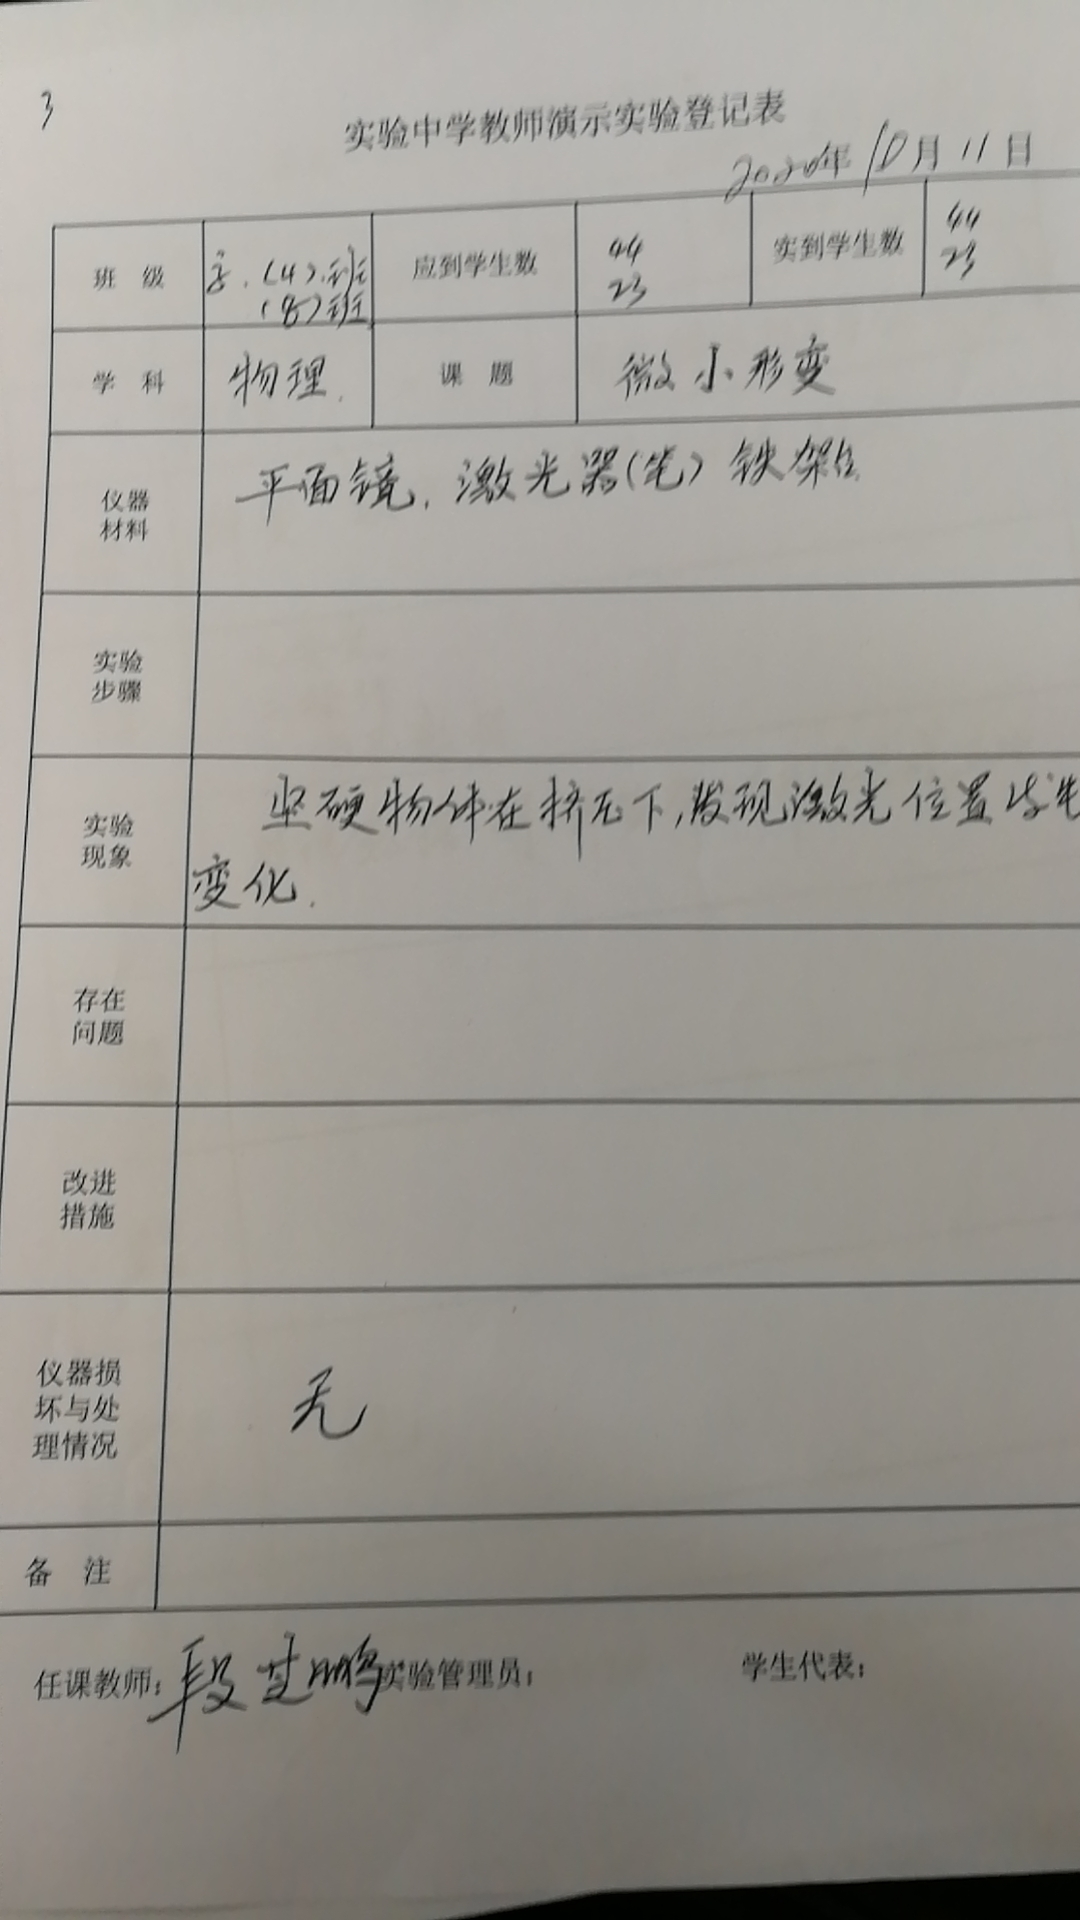 3
实验中学教师演示实验登记表
2020年10月11日
班 级 高.(4).班 应到学生数 44 实到学生数 44
(8)班 23 23
学 科 物理. 课 题 微小形变
仪器 平面镜.激光器(笔)铁架台
材料
实验
步骤
实验 坚硬物体在挤压下,发现激光位置发生
现象 变化.
存在
问题
改进
措施
仪器损
坏与处 无
理情况
备 注
任课教师: 段 鹏 实验管理员: 学生代表: